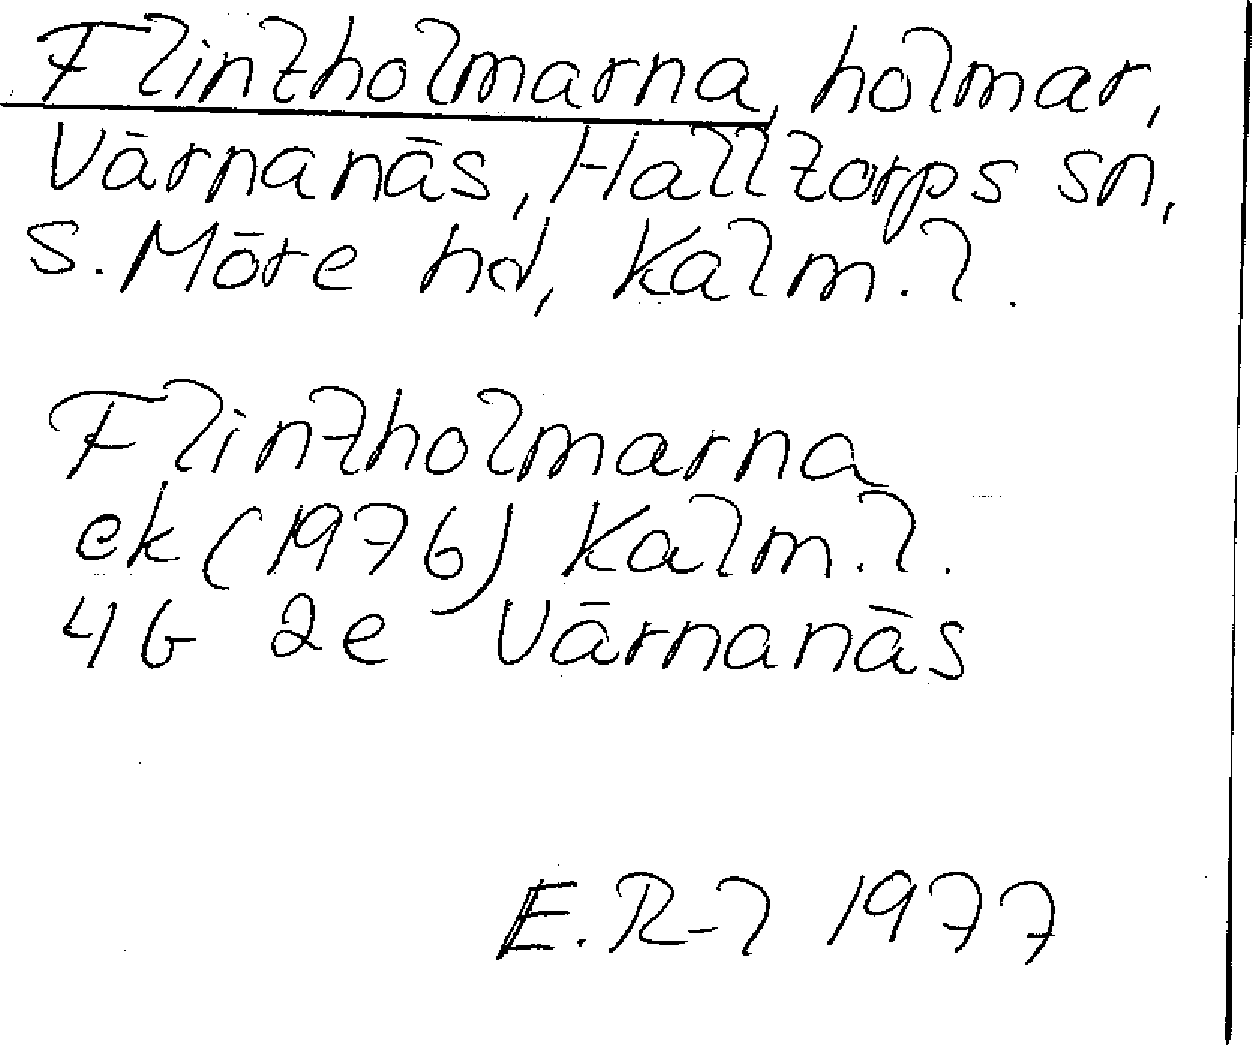 Flintholmarna, holmar,
Värnanäs, Halltorps sn,
S. Möre hd, Kalm. l.
Flintholmarna
ek (1976) Kalm. l.
4G 2e Värnanäs
E. R-l 1977